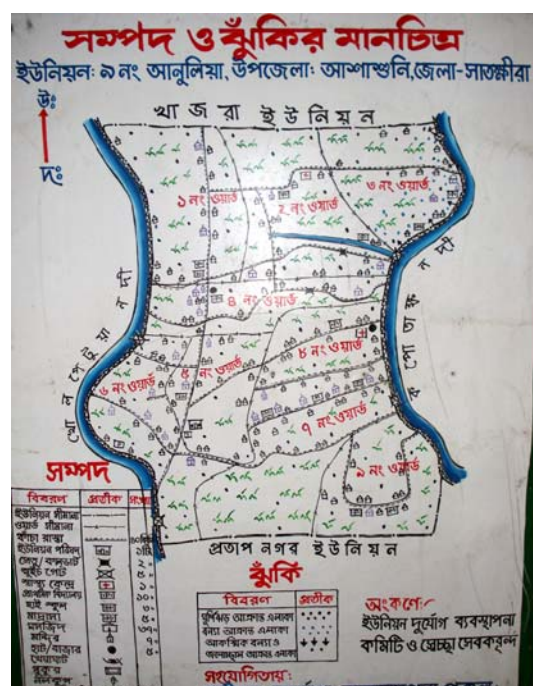 সম্পদ ও ঝুঁকির মানচিত্র
ইউনিয়ন: ৯ নং আনুলিয়া, উপজেলা: আশাশুনি, জেলা-সাতক্ষীরা
উঃ
দঃ
খাজরা ইউনিয়ন
১ নং ওয়ার্ড
২ নং ওয়ার্ড
৩ নং ওয়ার্ড
খোলপেটুয়া নদী
কপোতাক্ষ নদী
৪ নং ওয়ার্ড
৫ নং ওয়ার্ড
৮ নং ওয়ার্ড
৬ নং ওয়ার্ড
৭ নং ওয়ার্ড
৯ নং ওয়ার্ড
প্রতাপ নগর ইউনিয়ন
সম্পদ
বিবরণ প্রতীক সংখ্যা
ইউনিয়ন সীমানা
ওয়ার্ড সীমানা
কাঁচা রাস্তা
ইউনিয়ন পরিষদ
সুইচ গেট
স্বাস্থ্য কেন্দ্র
প্রাথমিক বিদ্যালয়
হাই স্কুল
মাদ্রাসা
মসজিদ
মন্দির
হাট/বাজার
খেয়াঘাট
পুকুর
নলকূপ
ঝুঁকি
বিবরণ প্রতীক
ঘূর্ণিঝড় আক্রান্ত এলাকা
বন্যা আক্রান্ত এলাকা
আকস্মিক বন্যা ও
জলোচ্ছ্বাস আক্রান্ত এলাকা
অংকণে:
ইউনিয়ন দুর্যোগ ব্যবস্থাপনা
কমিটি ও স্বেচ্ছা সেবকবৃন্দ
সহযোগিতায়: